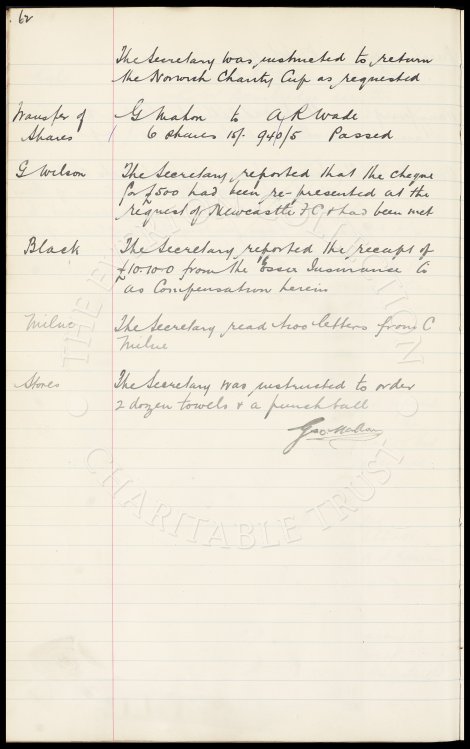 62
The Secretary was instructed to return
the Norwich Charity Cup as requested
Transfer of G Mahon to A R Wade
Shares 6 Shares 15/- 940/5 Passed
G Wilson The Secretary reported that the cheque
for £500 had been re-presented at the
request of Newcastle F C & had been met
Black The Secretary reported the receipt of
£10.10.0 from the Essex Insurance Co
as Compensation herein
Milne The Secretary read two letters from C
Milne
Stores The Secretary was instructed to order
2 dozen towels & a punchball
Geo Mahon
THE EVERTON COLLECTION
CHARITABLE TRUST